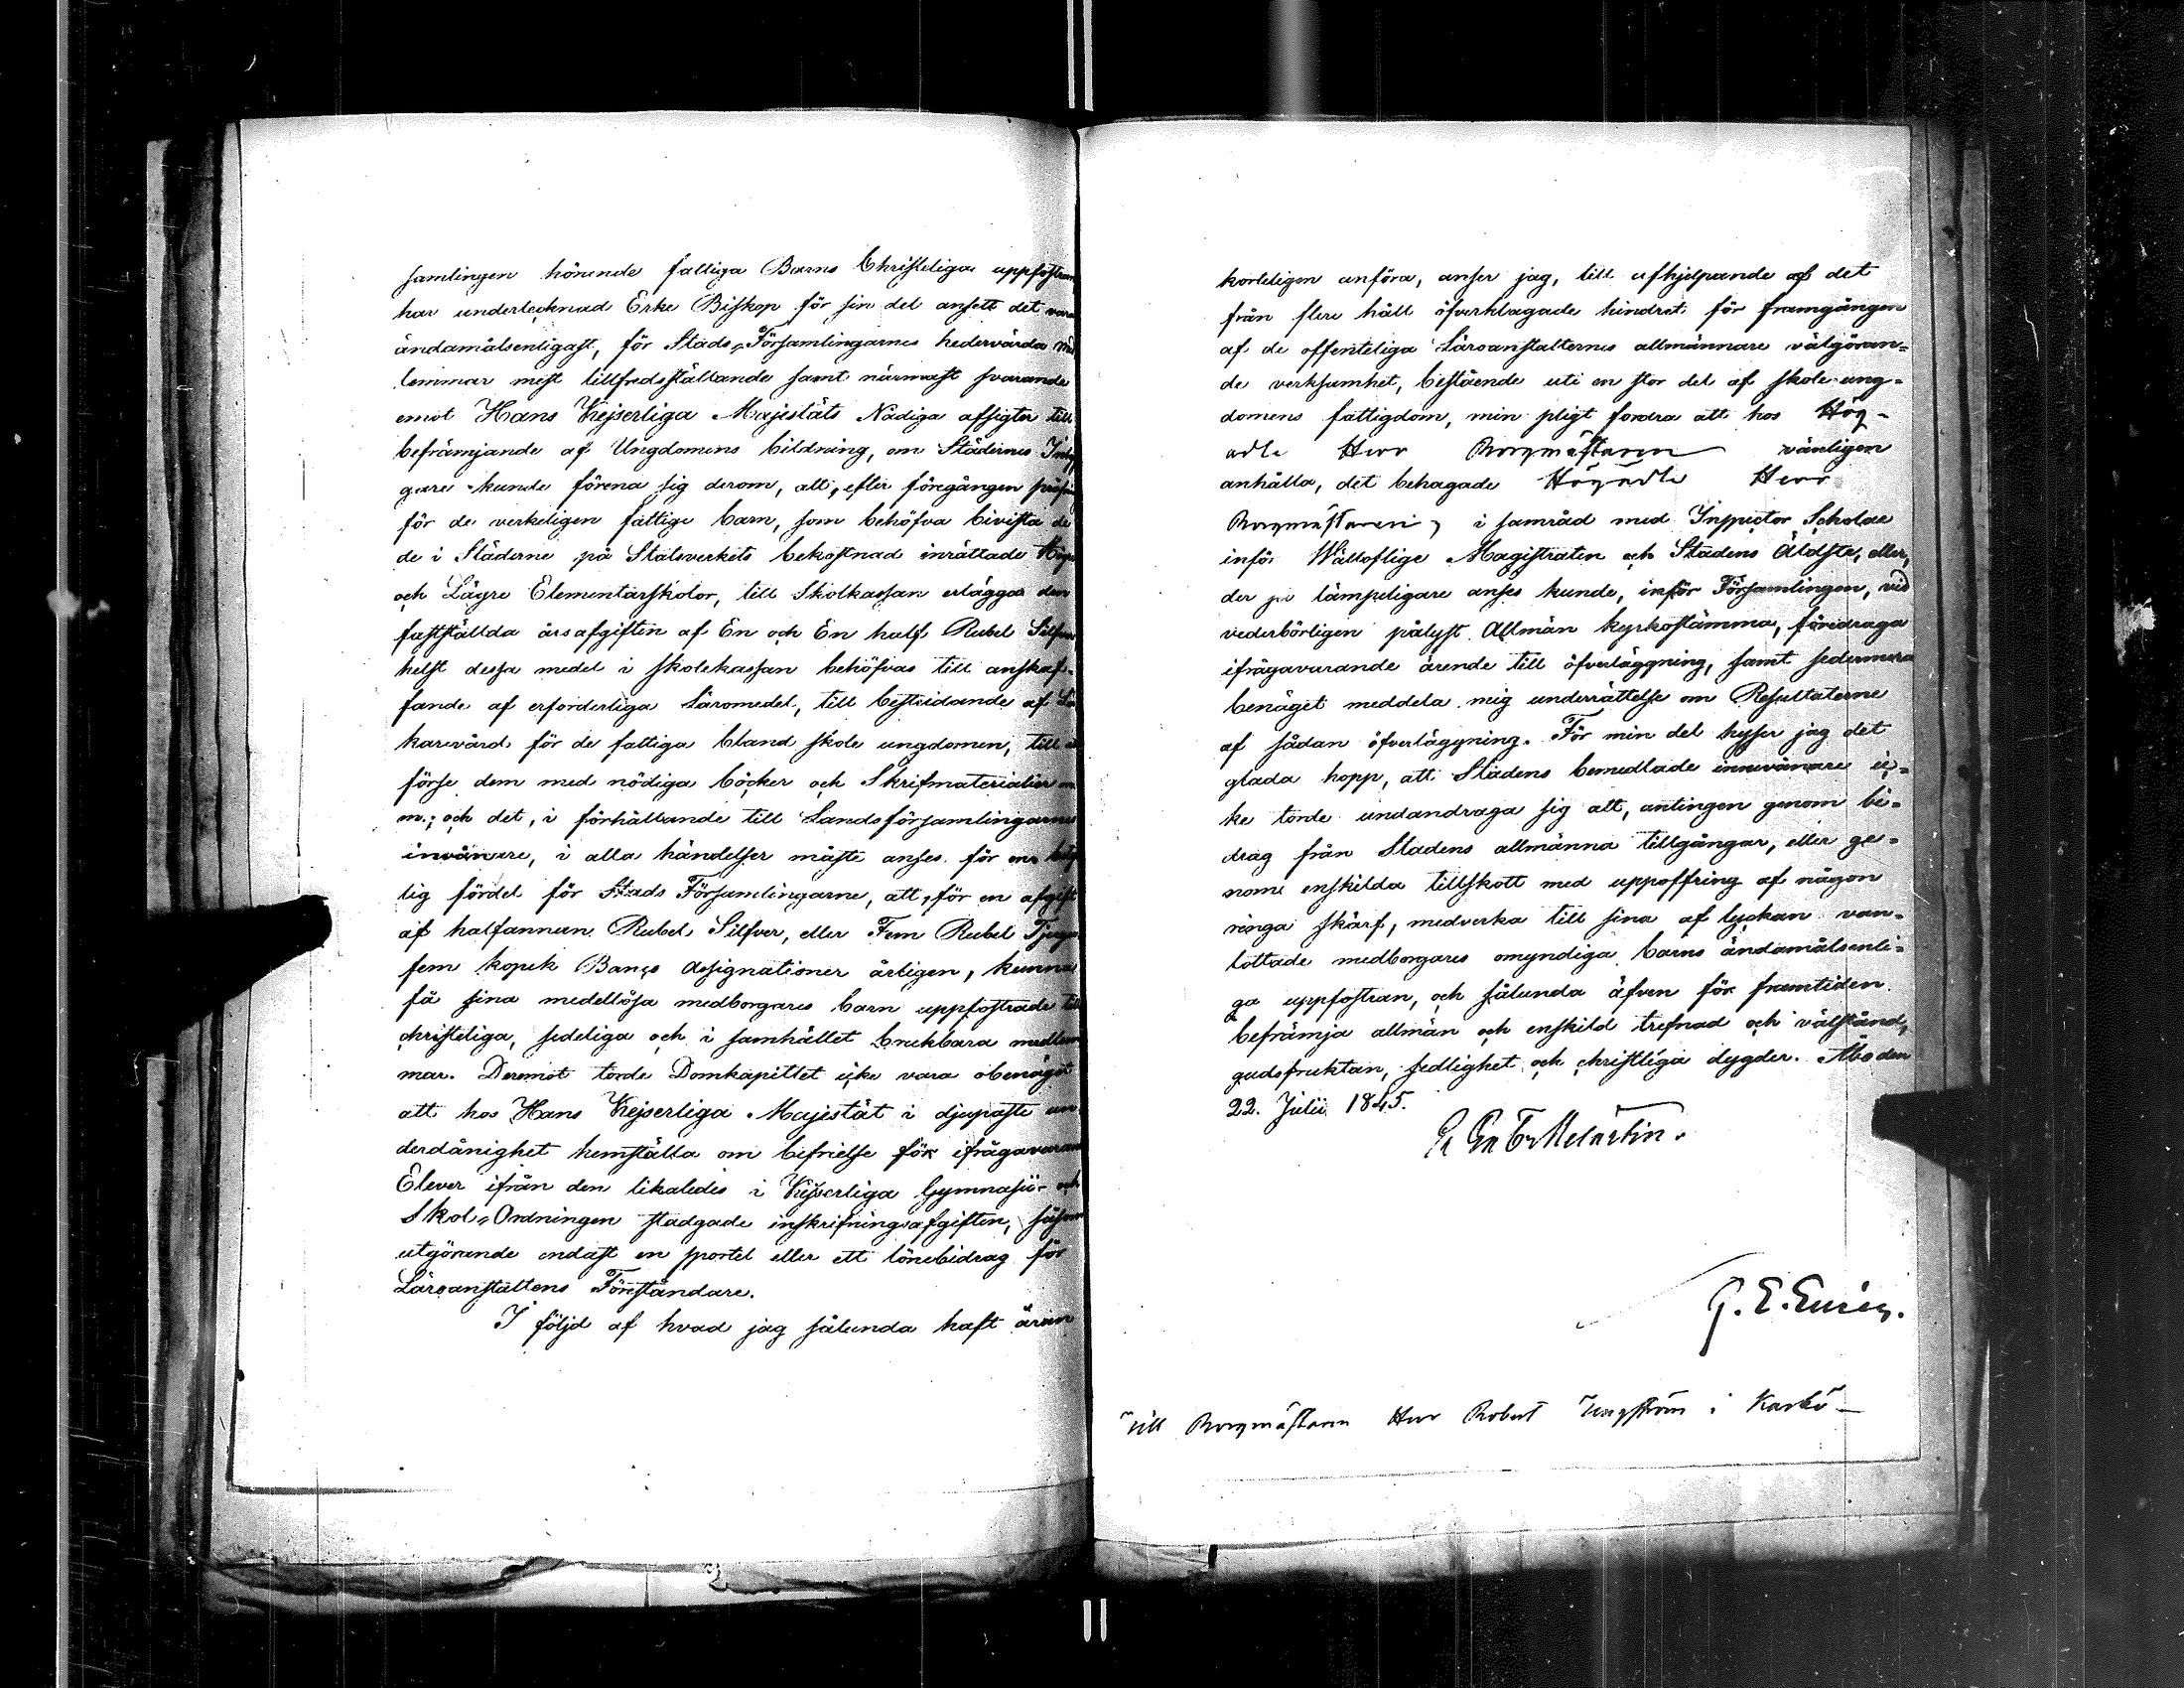 samlingen hörande fattiga Barns Christeliga uppfostran
har undertecknad Erke Biskop för sin del ansett det vara
ändamålsenligast, för Stads-Församlingarnes hedervärda
lemmar mest tillfredsställande samt närmast svarande
emot Hans Kejserliga Majestäts Nådiga afsigter till
befrämjande af Ungdomens bildning, om Städernes
gare kunde förena sig derom, att, efter föregången
för de verkeligen fattige barn, som behöfva bivista de
de i Städerne på Statsverkets bekostnad inrättade
och Lägre Elementarskolor, till Skolkassan erlägga den
fastställda årsafgiften af En och En half Rubel Silfver
helst dessa medel i skolekassan behöfvas till anskaf-
fande af erforderliga Läromedel, till bestridande af Lä
karevård för de fattiga bland skole ungdomen, till
förse dem med nödiga böcker och Skrifmaterialier m.
m.; och det, i förhållande till Landsförsamlingarnes
invånare, i alla händelser måste anses för en
lig fördel för Stads Församlingarne, att, för en afgift
af halfannan Rubel Silfver, eller Fem Rubel Tjugu
fem kopek Banco Assignationer årligen, kunna
få sina medellösa medborgares barn uppfostrade till
christeliga, sedeliga och i samhället brukbara medlem
mar. Deremot torde Domkapitlet icke vara obenäget
att hos Hans Kejserliga Majestät i djupaste un
derdånighet hemställa om befrielse för ifrågavarande
Elever ifrån den likaledes i Kejserliga Gymnasii- och
Skol-Ordningen stadgade inskrifningsafgiften, såsom
utgörande endast en sportel eller ett lönebidrag för
Läroanstaltens Föreståndare.
I följd af hvad jag sålunda haft äran
korteligen anföra, anser jag, till afhjelpande af det
från flere håll öfverklagade hindret för framgången
af de offenteliga Läroanstalternes allmännare välgöran-
de verksamhet, bestående uti en stor del af skole-ung-
domens fattigdom, min pligt fordra att hos Hög-
ädle Herr Borgmästaren vänligen
anhålla, det behagade Högädle Herr
Borgmästaren, i samråd med Inspector Scholae
inför Wälloflige Magistraten och Stadens Äldste, eller,
der på lämpeligare anses kunde, inför Församlingen, vid
vederbörligen pålyst Allmän kyrkostämma, föredraga
ifrågavarande ärende till öfverläggning, samt sedermera
benäget meddela mig underrättelse om Resultaterne
af sådan öfverläggning. För min del hyser jag det
glada hopp, att Stadens bemedlade innevånare ic-
ke torde undandraga sig att, antingen genom bi-
drag från Stadens allmänna tillgångar, eller ge-
nom enskilda tillskott med uppoffring af någon
ringa skärf, medverka till sina af lyckan van-
lottade medborgares omyndiga barns ändamålsenli-
ga uppfostran, och sålunda äfven för framtiden
befrämja allmän och enskild trefnad och välstånd,
gudsfruktan, sedlighet och christliga dygder. Åbo den
22. Julii 1845.
Melartin.
G. E. Eurén.
Till Borgmästaren Herr Robert